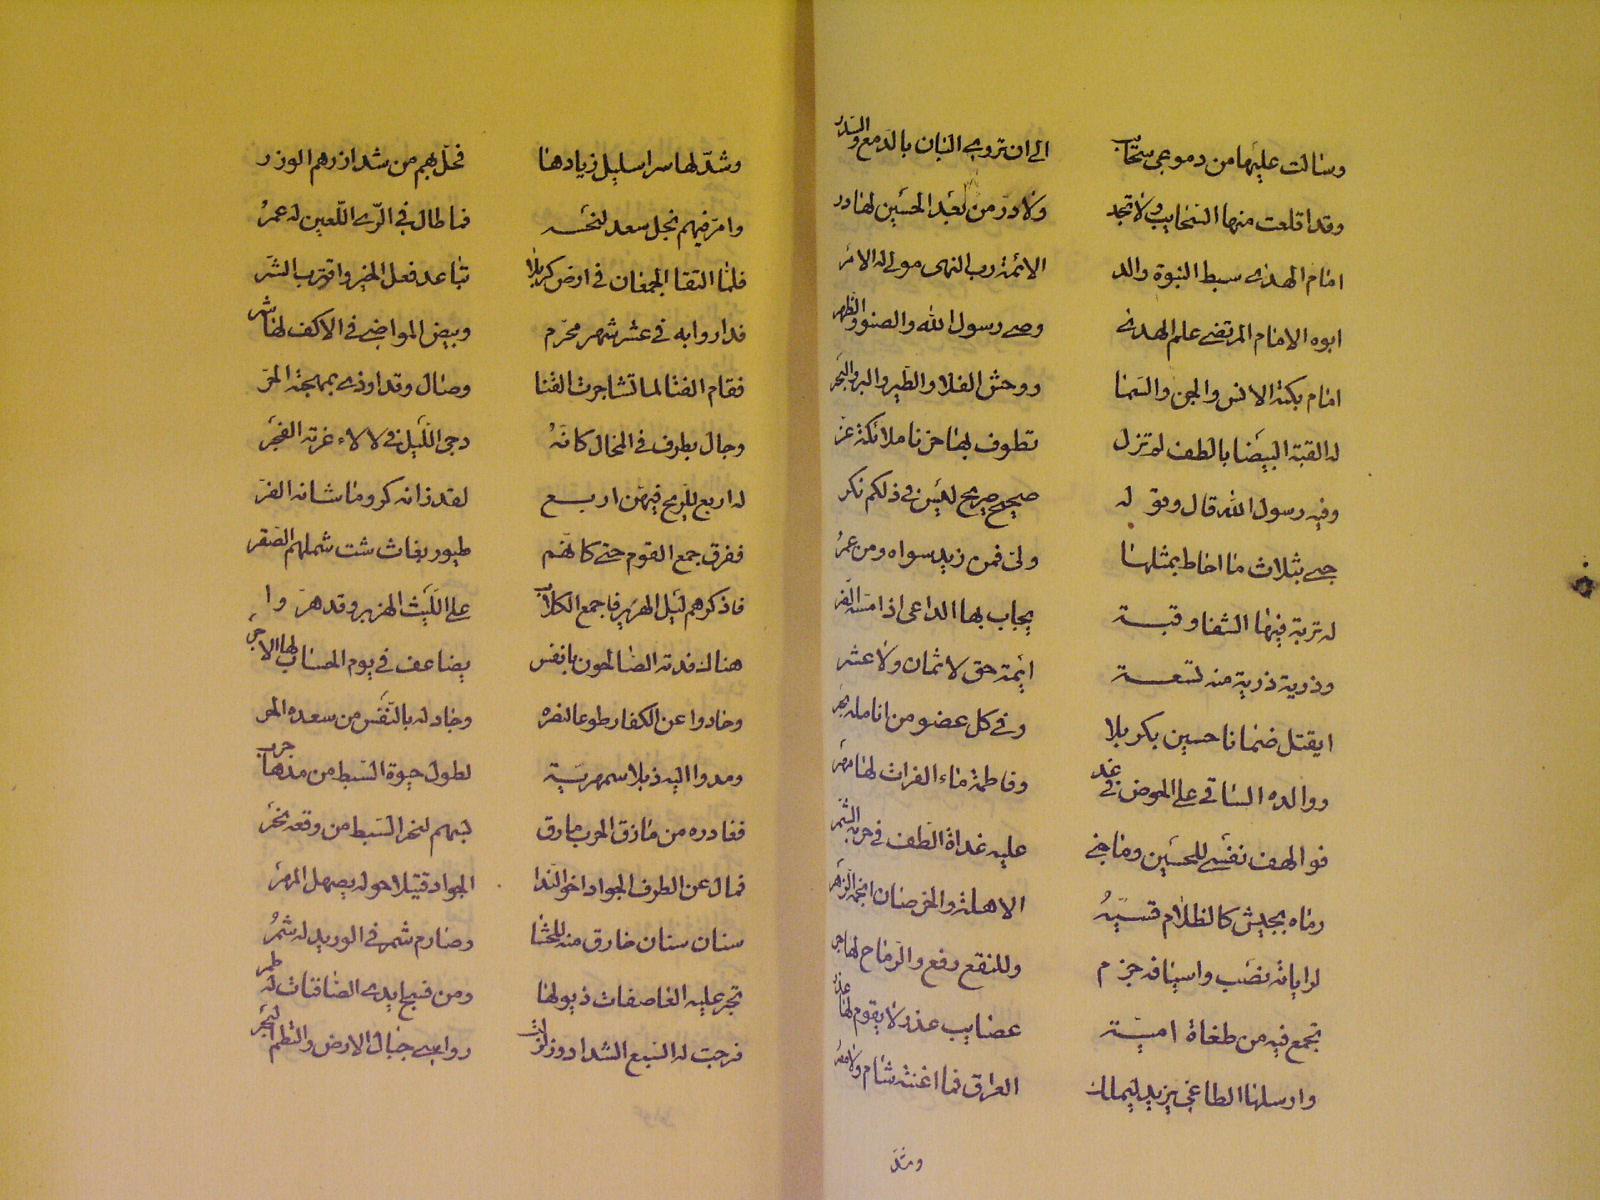 وسالت عليها من دموعي سحائب الى ان تروى البان بالدمع والسدر
وقد اقلعت منها السحايب ولا تجد ولا در من بعد الحسين لها در
امام الهدى سبط النبوة والد الائمة رب النهى مولى له الامر
ابوه الامام المرتضى علم الهدى وصي رسول الله والصنو والظهر
امام بكته الانس والجن والسما ووحش الفلا والطير والبر والبحر
له القبة البيضا بالطف لم تزل تطوف بها حزنا ملائكة غر
وفيه رسول الله قال وقوله صحيح صريح ليس في ذلكم نكر
حبي بثلاث ما احاط بمثلها ولي فمن زيد سواه ومن عمر
له تربة فيها الشفا وقبة يجاب بها الداعي اذا مسه الضر
وذرية ذرية منه تسعة ائمة حق لا ثمان ولا عشر
ايقتل ضمانا حسين بكربلا وفي كل عضو من انامله بحر
ووالده الساقي على الحوض في غد وفاطمة ماء الفرات لها مهر
فوالهف نفسي للحسين وما جنى عليه غداة الطف في حربه الشمر
رماه بجيش كالظلام قسيه الاهلة والخرصان انجمه الزهر
لراياته نصب واسيافه جزم وللنقع رفع والرماح لها جر
تجمع فيه من طغاة امية عصايب غدر لا يقوم لها عذر
وارسلها الطاغي يزيد ليملك العراق فما اغنته شام ولا مصر
ومتد
وشد لها سرا سليل زيادها فحل بهم من شد ازرهم الوزر
وامر فيهم نجل سعد لنحسه فما طال في الري اللعين له عمر
فلما التقا الجمعان في ارض كربلا تباعد فعل الخير واقترب الشر
فداروا به في عشر شهر محرم وبيض المواضي في الاكف لها شر
فقام الفتا لما تشاجرت القنا وصال وقد اوذى بمهجته الحر
وجال بطرف في المجال كانه دجى الليل في لالاء غرته الفجر
له اربع للريح فيهن اربع لقد زانه كر وما شانه الفر
ففرق جمع القوم حتى كانهم طيور بغاث شت شملهم الصقر
فاذكرهم ليل الهرير فاجمع الكلاب على الليث الهزبر وقد هروا
هناك فدته الصالحون بانفس يضاعف في يوم الحساب لها الاجر
وحادوا عن الكفار طوعا لنصره وجاد له بالنفس من سعده الحر
ومدوا اليه ذبلا سمهرية لطول حيوة السبط من مدها جزر
فغادره من مازق الحرب مارق بسهم لنحر السبط من وقعه نحر
فمال عن الطرف الجواد اخو الندا الجواد قتيلا حوله يصهل المهر
سنان سنان خارق منه للحشا وصارم شمر في الوريد له شمر
تجر عليه العاصفات ذيولها ومن نسج ايدى الصافنات له طمر
فرجت له السبع الشداد وزلزلت رواسي جبال الارض والتطم البحر